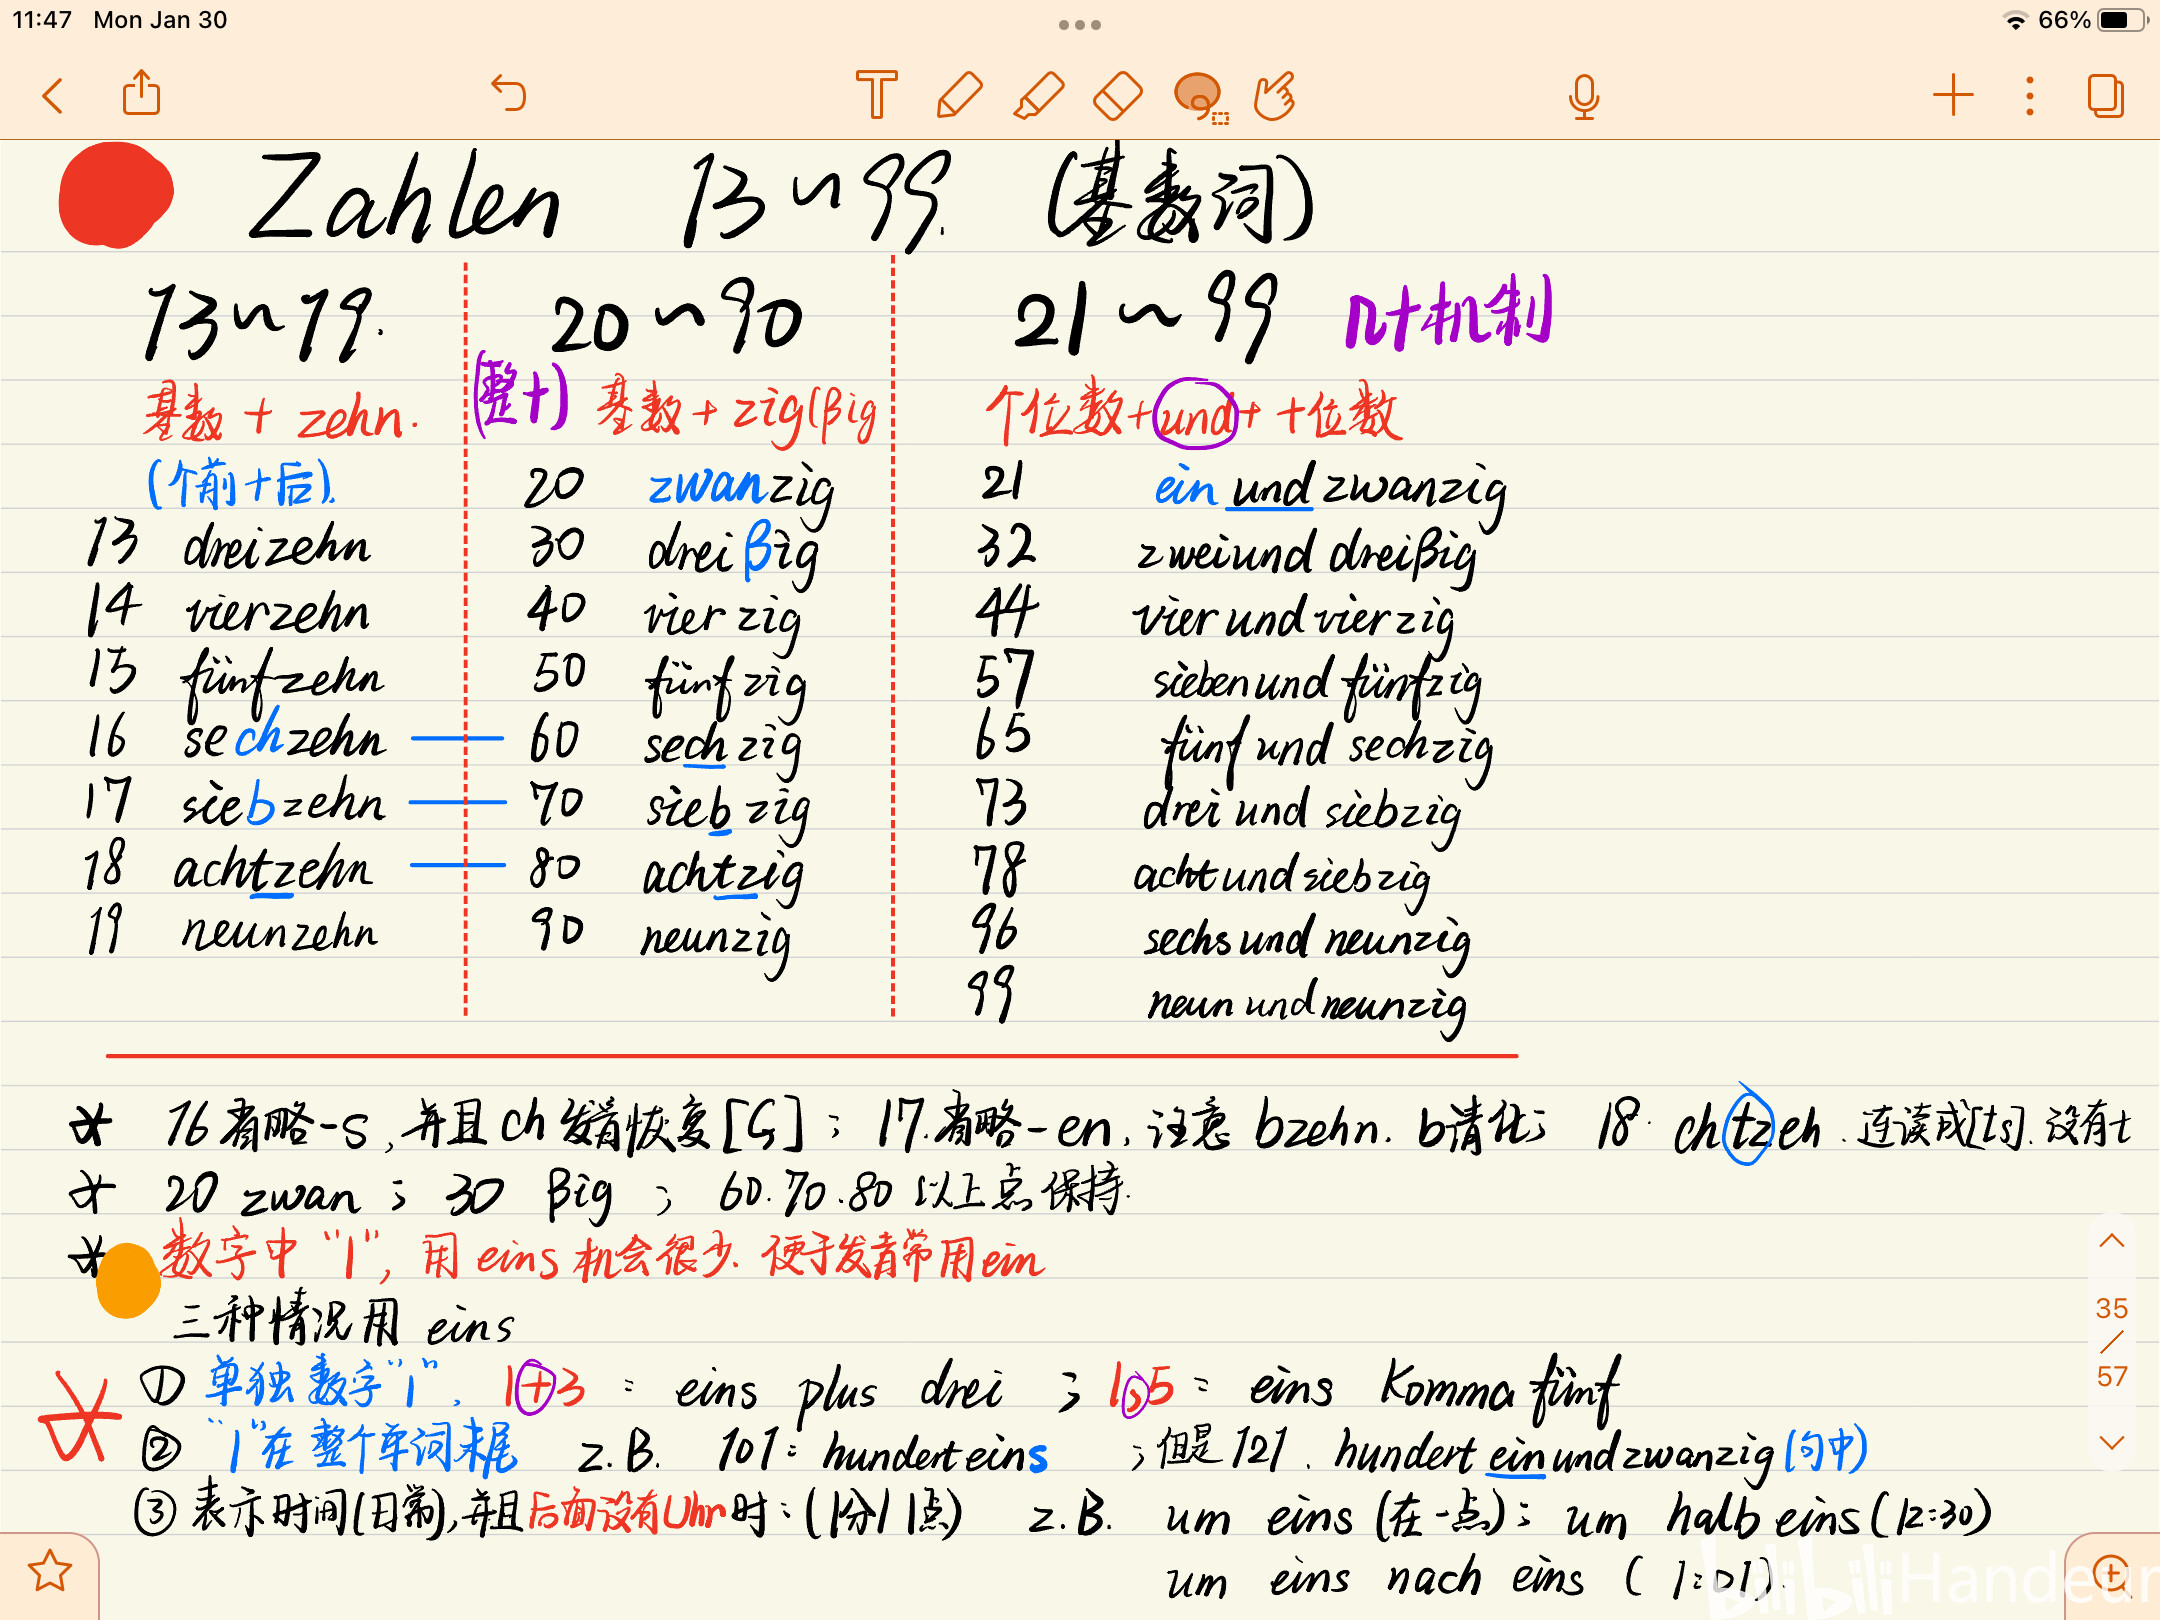 11:47 Mon Jan 30 66%
Zahlen 13~99. (基数词)
13~19. 20~90 21~99 几十机制
基数 + zehn. (整十) 基数 + zig(βig 个位数+und+十位数
(个前十后). 20 zwanzig 21 ein und zwanzig
13 dreizehn 30 dreiβig 32 zweiund dreiβig
14 vierzehn 40 vierzig 44 vier und vierzig
15 fünfzehn 50 fünfzig 57 siebenund fünfzig
16 sechzehn 60 sechzig 65 fünf und sechzig
17 siebzehn 70 siebzig 73 drei und siebzig
18 achtzehn 80 achtzig 78 achtundsiebzig
19 neunzehn 90 neunzig 96 sechs und neunzig
99 neun und neunzig
16省略-s,并且ch发音恢复[ç]; 17.省略-en,注意bzehn. b清化; 18. chtzeh.连读成[ts].没有t
20 zwan; 30 βig; 60.70.80 以上点保持.
数字中"1",用eins机会很少.便于发音常用ein
三种情况用 eins
① 单独数字"1". 1+3 = eins plus drei ; 1,5 = eins Komma fünf
② "1"在整个单词末尾 z.B. 101: hunderteins ;但是121. hundert einundzwanzig(句中)
③ 表示时间(日常),并且后面没有Uhr时:(1分/1点) z.B. um eins (在一点); um halb eins(12:30)
um eins nach eins (1:01).
35
/
57
bilibili Handeur